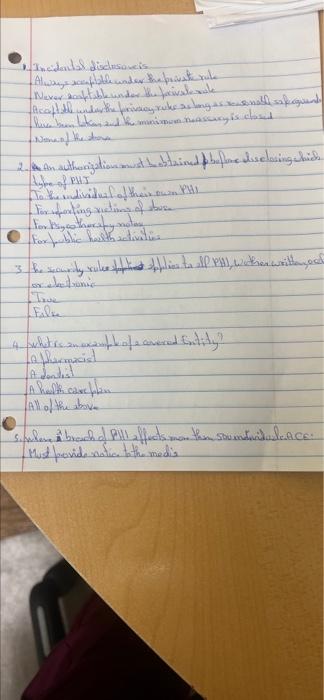 1. Incidental disclosure is
Always acceptable under the private rule
Never acceptable under the private rule
Acceptable under the privacy rule as long as reasonable safeguards
have been taken and the minimum necessary is closed
None of the above
2. An authorization must be obtained before disclosing which
type of PHI
To the individual of their own PHI
For reporting victims of abuse
For Psycotherapy notes
For public health activities
3. The security rule applies to all PHI, written, oral
or electronic
True
False
4. What is an example of a covered Entity?
A pharmacist
A dentist
A health care plan
All of the above
5. when a breach of PHI affects more than 500 individuals a CE:
Must provide notice to the media